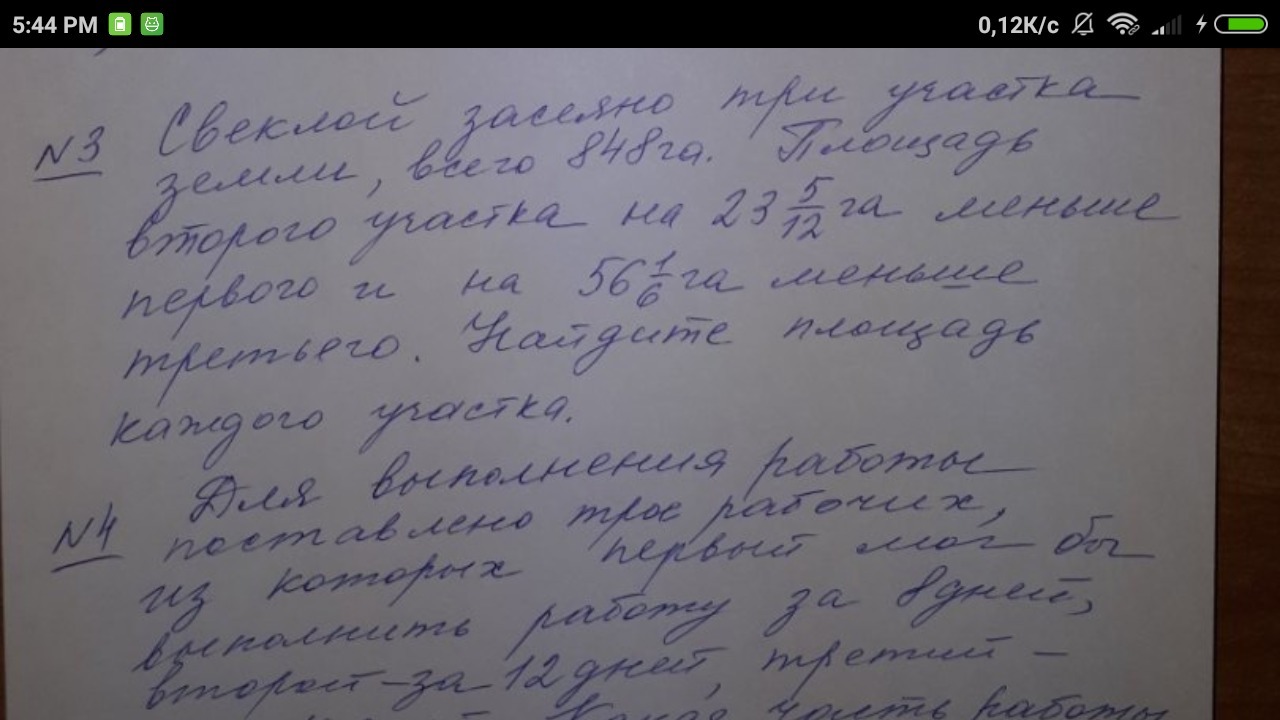 5:44 PM 0,12K/c
№3 Свеклой засеяно три участка
земли, всего 848га. Площадь
второго участка на 23 5/12 га меньше
первого и на 56 1/6 га меньше
третьего. Найдите площадь
каждого участка.
№4 Для выполнения работы
поставлено трое рабочих,
из которых первый мог бы
выполнить работу за 8 дней,
второй – за 12 дней, третий –
Какая часть работы